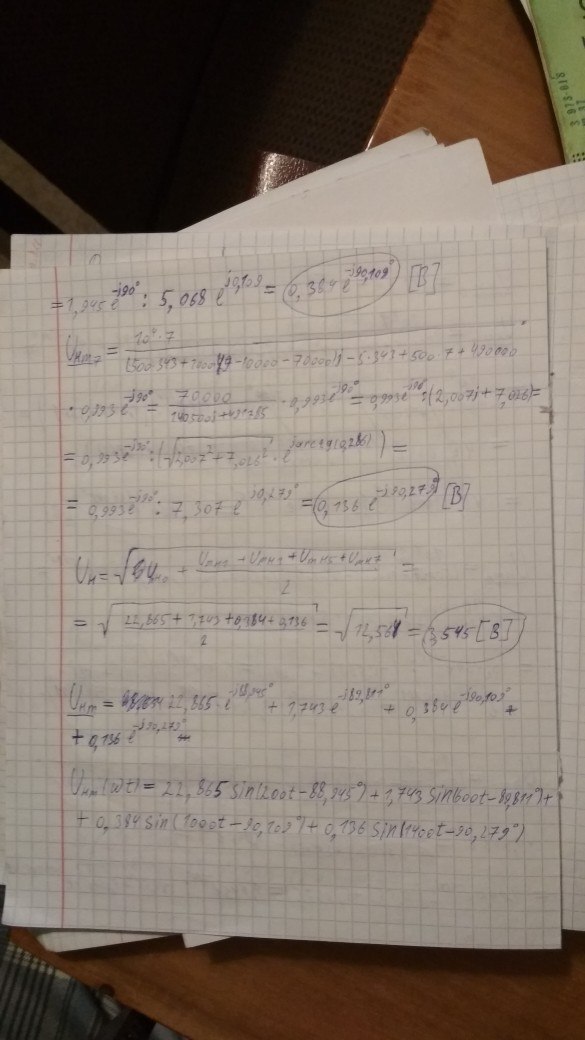 = 1,945 e^-j90° : 5,068 e^j0,109 = 0,384 e^-j90,109° [В]
Uнm7 = 10⁴·7 / ·
· 0,993 e^-j90° = 70000 / · 0,993 e^-j90° = 0,993 e^-j90° : (2,007j + 7,026) =
= 0,993 e^-j90° : (√ 2,007² + 7,026² · e^jarctg(0,286) ) =
= 0,993 e^-j90° : 7,307 e^j0,279° = 0,136 e^-j90,279° [В]
Uн = √ + Umн1 + Umн3 + Umн5 + Umн7 / 2 =
= √ 22,865 + 1,743 + 0,384 + 0,136 / 2 = √ 12,564 = 3,545 [В]
Uнm = 22,865 · e^-j88,945° + 1,743 e^-j89,811° + 0,384 e^-j90,109° +
+ 0,136 e^-j90,279°
Uнm (ωt) = 22,865 sin(200t - 88,945°) + 1,743 sin(600t - 89,811°) +
+ 0,384 sin(1000t - 90,109°) + 0,136 sin(1400t - 90,279°)